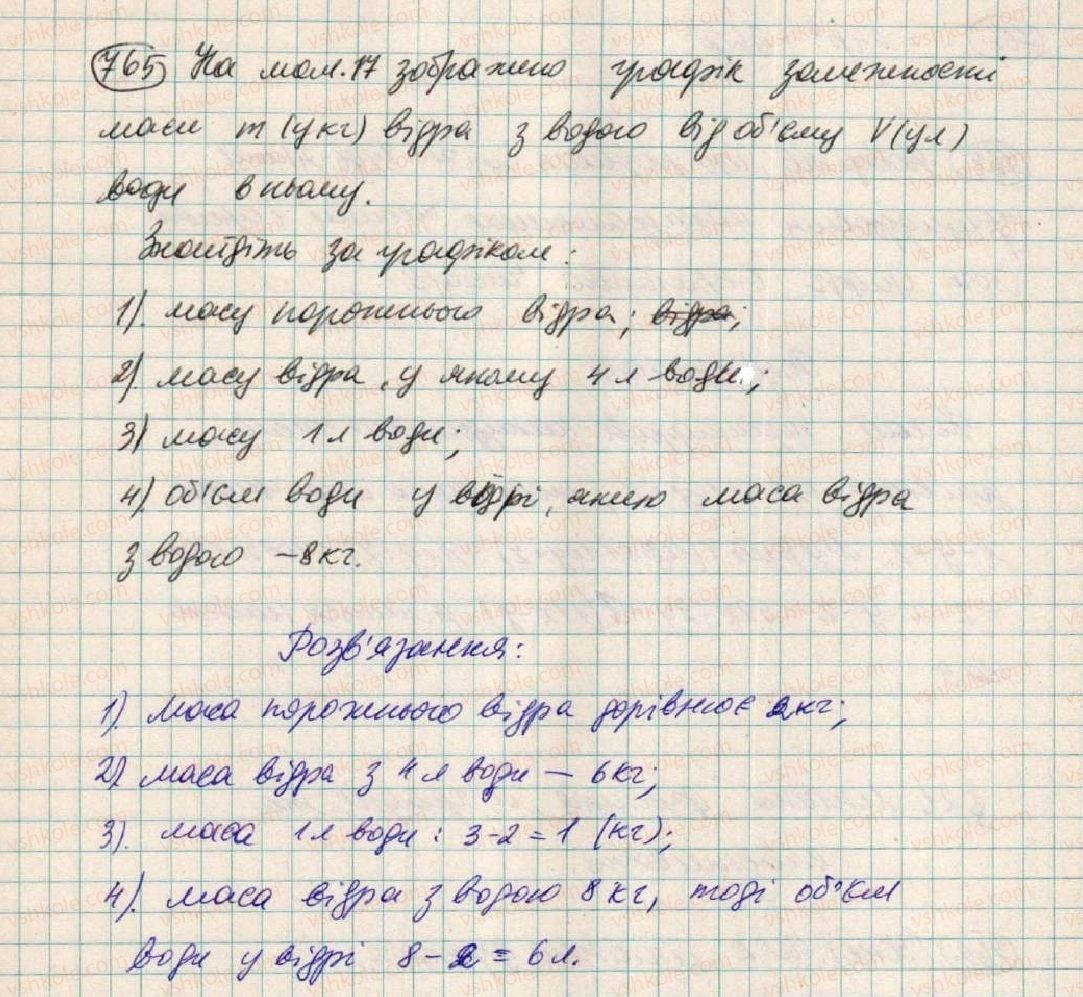 765 На мал.17 зображено графік залежності
маси m (у кг) відра з водою від об'єму V (у л)
води в ньому.
Знайдіть за графіком:
1). масу порожнього відра; відра;
2) масу відра, у якому 4 л води;
3) масу 1 л води;
4). об'єм води у відрі, якщо маса відра
з водою – 8 кг.
Розв'язання:
1). маса порожнього відра дорівнює 2 кг;
2) маса відра з 4 л води – 6 кг;
3). маса 1 л води: 3-2=1 (кг);
4). маса відра з водою 8 кг, тоді об'єм
води у відрі 8-2=6 л.